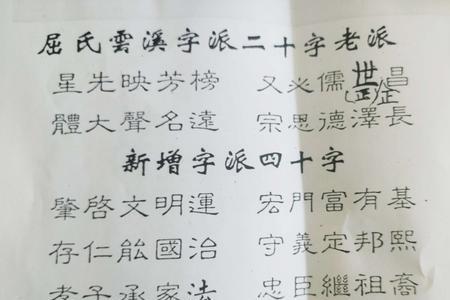 屈氏雲溪字派二十字老派
星先映芳榜 又必儒世昌
(正)正
體大聲名遠 宗思德澤長
新增字派四十字
肇啓文明運 宏門富有基
存仁能國治 守義定邦熙
孝子承家法 忠臣繼祖裔